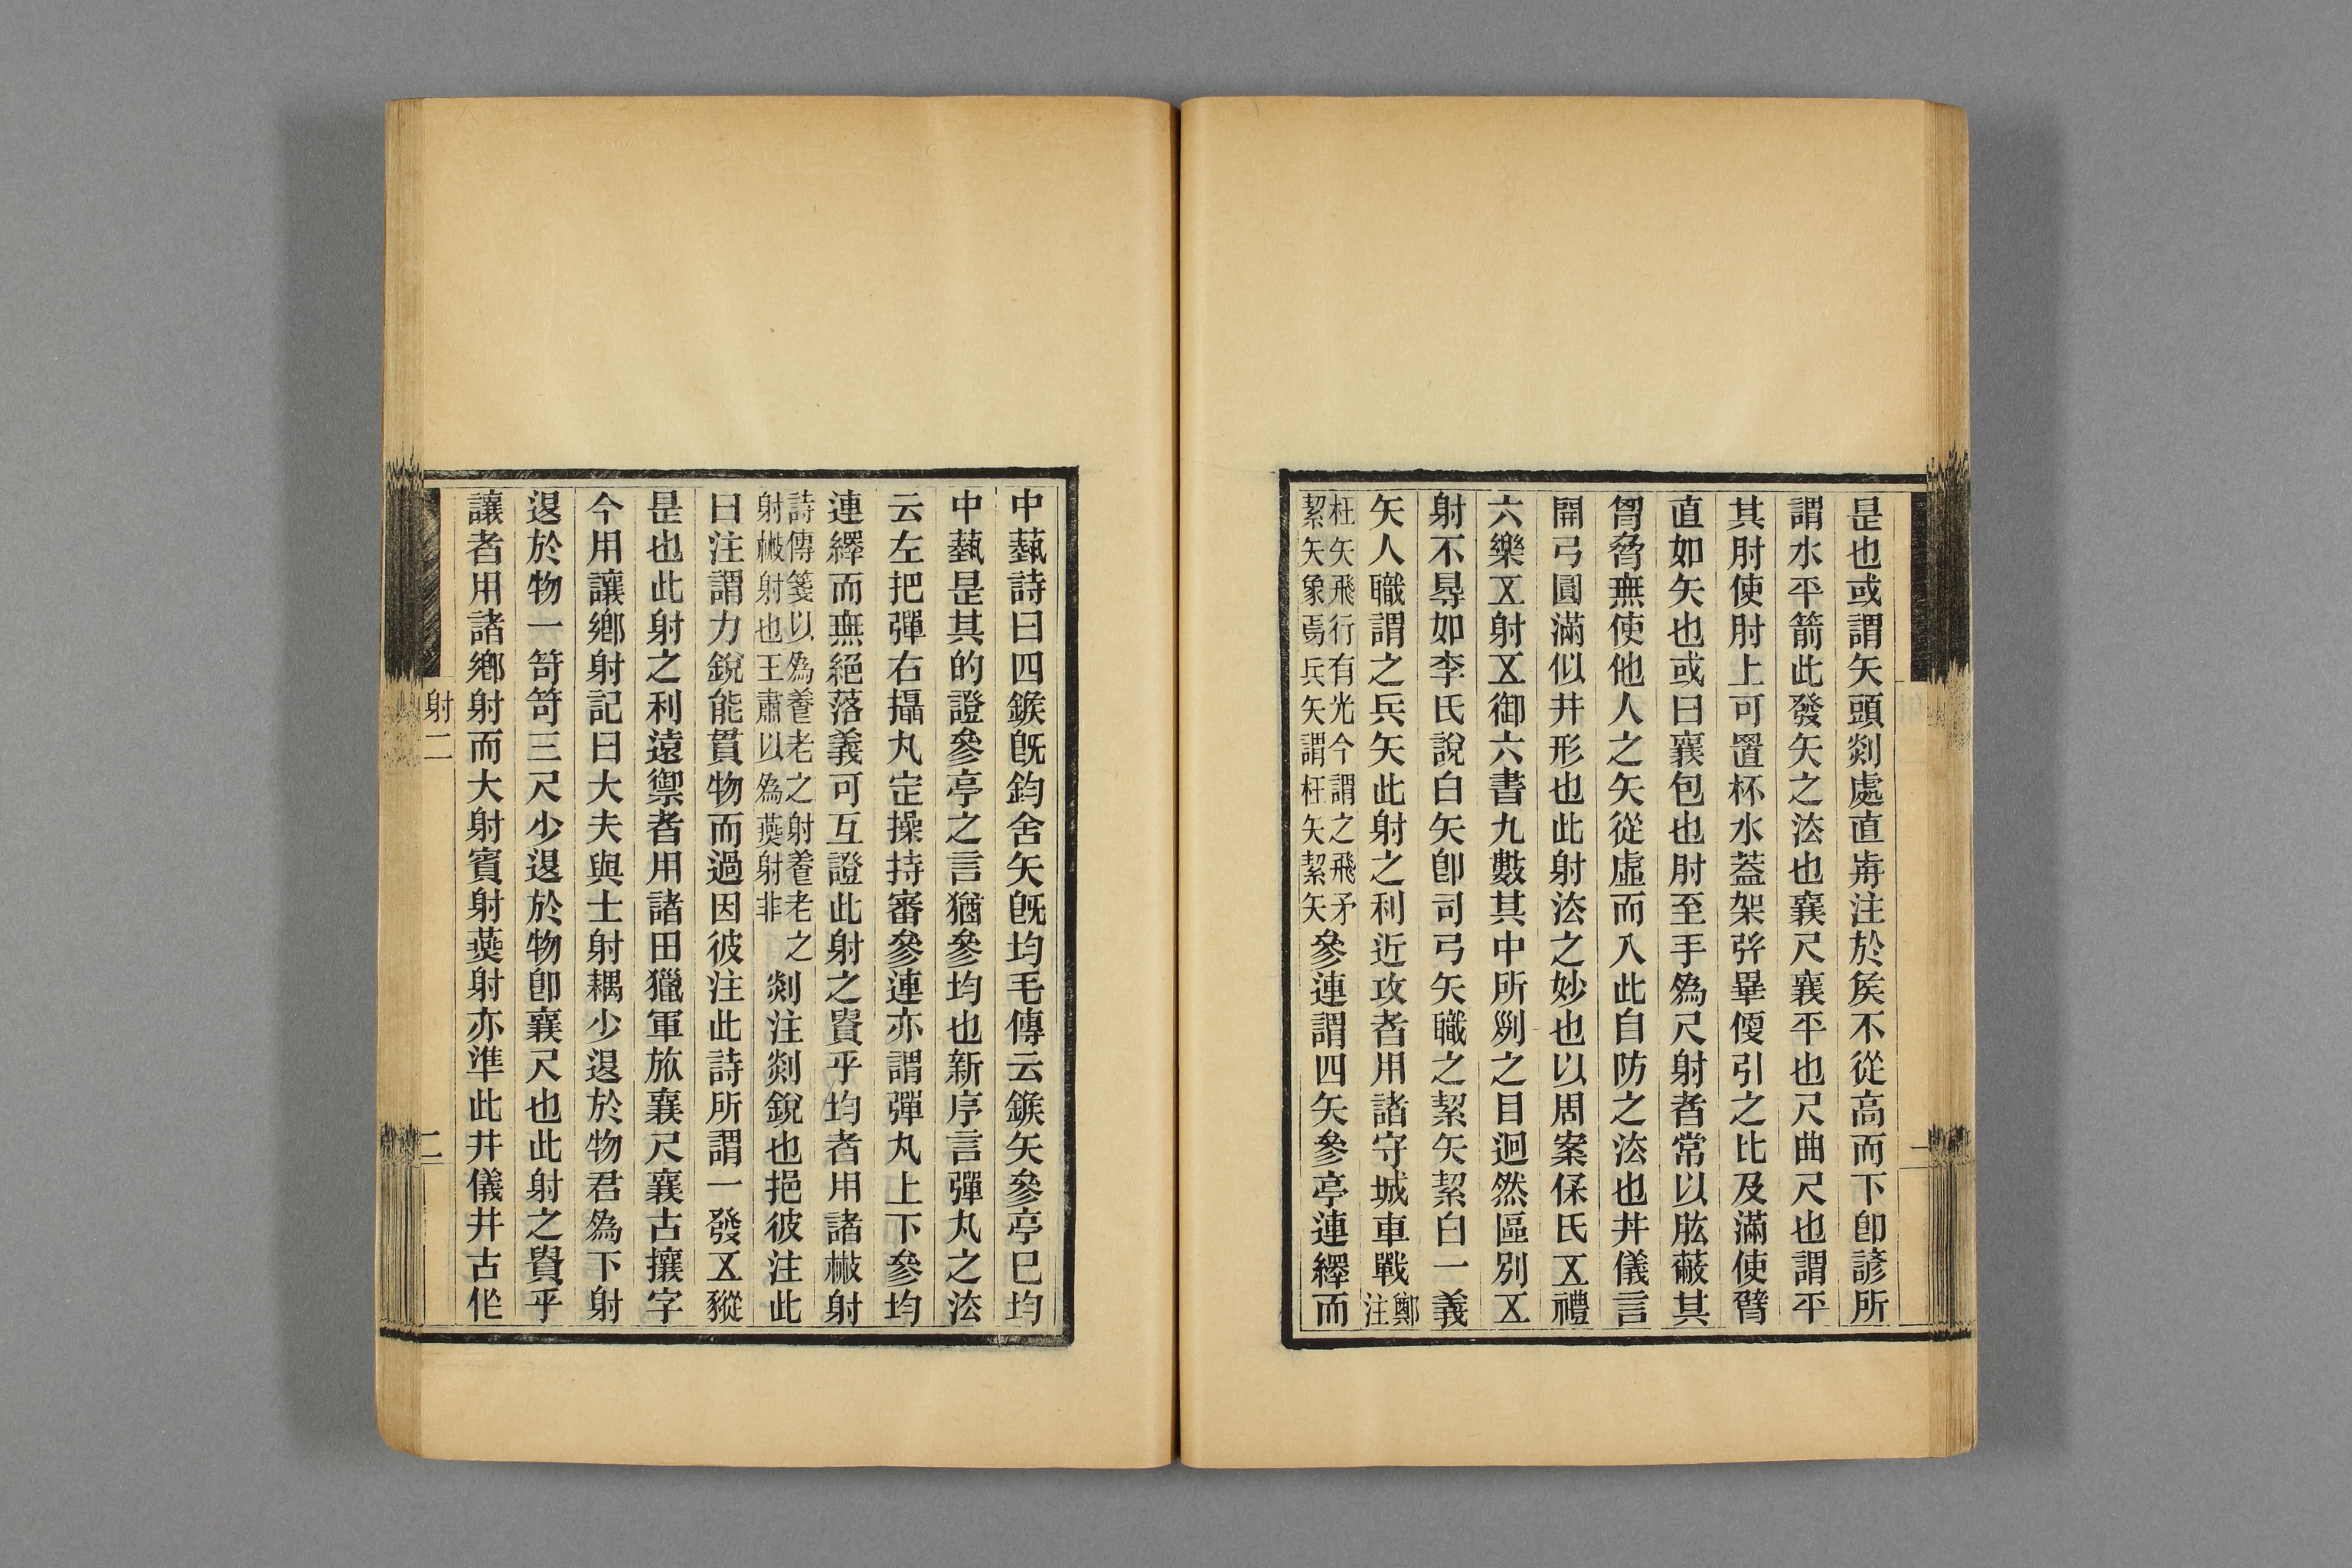 是也或謂矢頭剡處直歬注於矦不從高而下卽諺所
謂水平箭此發矢之㳒也襄尺襄平也尺曲尺也謂平
其肘使肘上可置杯水蓋架弮畢偄引之比及滿使臂
直如矢也或曰襄包也肘至手爲尺射者常以肱蔽其
胷脅無使他人之矢從虛而入此自防之㳒也丼儀言
開弓圓滿似井形也此射㳒之妙也以周案保氏㐅禮
六樂㐅射㐅御六書九數其中所𠛱之目迥然區別㐅
射不㝵如李氏說白矢卽司弓矢職之絜矢絜白一義
矢人職謂之兵矢此射之利近攻者用諸守城車戰鄭注
枉矢飛行有光今謂之飛矛絜矢象焉兵矢謂枉矢絜矢參連謂四矢參亭連繹而
中蓺詩曰四鍭旣鈞舍矢旣均毛傳云鍭矢參亭巳均
中蓺是其的證參亭之言猶參均也新序言彈丸之㳒
云左把彈右攝丸定操持審參連亦謂彈丸上下參均
連繹而無絕落義可互證此射之貴乎均者用諸㯙射
詩傳箋以爲養老之射養老之射㯙射也王肅以爲燕射非剡注剡銳也挹彼注此
曰注謂力銳能貫物而過因彼注此詩所謂一發㐅豵
是也此射之利遠禦者用諸田獵軍旅襄尺襄古攘字
今用讓鄕射記曰大夫與士射耦少退於物君爲下射
退於物一笴笴三尺少退於物卽襄尺也此射之貴乎
讓者用諸鄕射而大射賓射燕射亦準此丼儀丼古作
射二
二